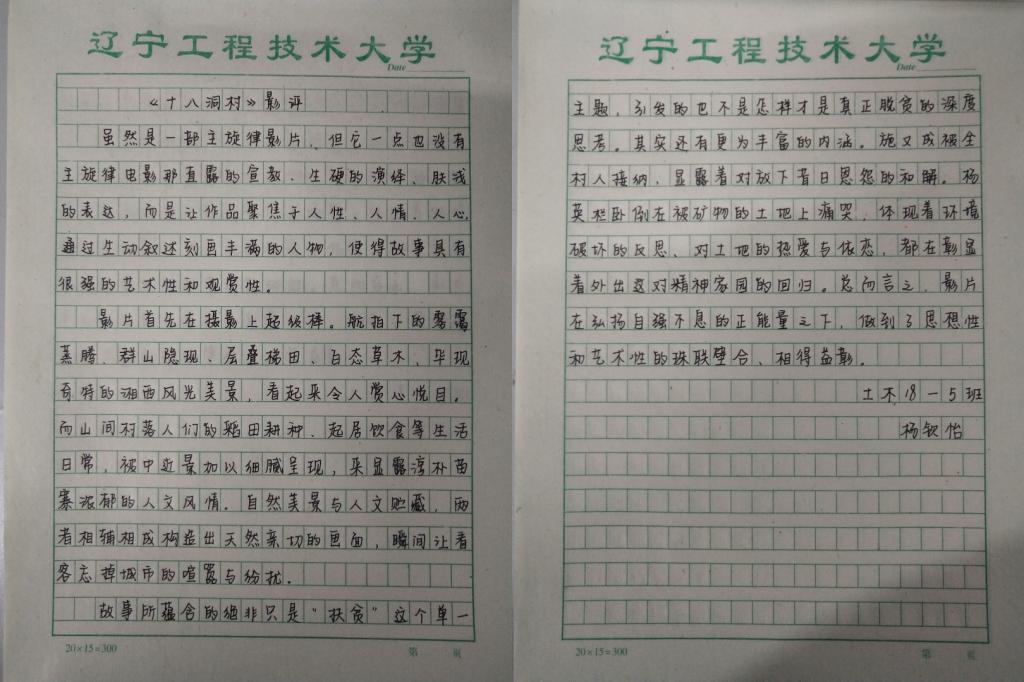 辽宁工程技术大学
Date
《十八洞村》影评
虽然是一部主旋律影片,但它一点也没有
主旋律电影那直露的宣教、生硬的演绎、肤浅
的表达,而是让作品聚焦于人性、人情、人心。
通过生动叙述刻画丰满的人物,使得故事具有
很强的艺术性和观赏性。
影片首先在摄影上超级棒。航拍下的雾霭
蒸腾、群山隐现、层叠梯田、百态草木、毕现
奇特的湘西风光美景,看起来令人赏心悦目。
而山间村落人们的稻田耕种、起居饮食等生活
日常,被中近景加以细腻呈现,来显露淳朴苗
寨浓郁的人文风情。自然美景与人文贮藏,两
者相辅相成构造出天然亲切的画面,瞬间让看
客忘掉城市的喧嚣与纷扰。
故事所蕴含的绝非只是“扶贫”这个单一
20×15=300
第 页
辽宁工程技术大学
Date
主题,引发的也不是怎样才是真正脱贫的深度
思考。其实还有更为丰富的内涵。施又成被全
村人接纳,显露着对放下昔日恩怨的和解。杨
英栏卧倒在被矿物的土地上痛哭,体现着环境
破坏的反思、对土地的热爱与依恋,都在彰显
着外出这对精神家园的回归。总而言之,影片
在弘扬自强不息的正能量之下,做到了思想性
和艺术性的珠联璧合、相得益彰。
土木18-5班
杨钦怡
20×15=300
第 页